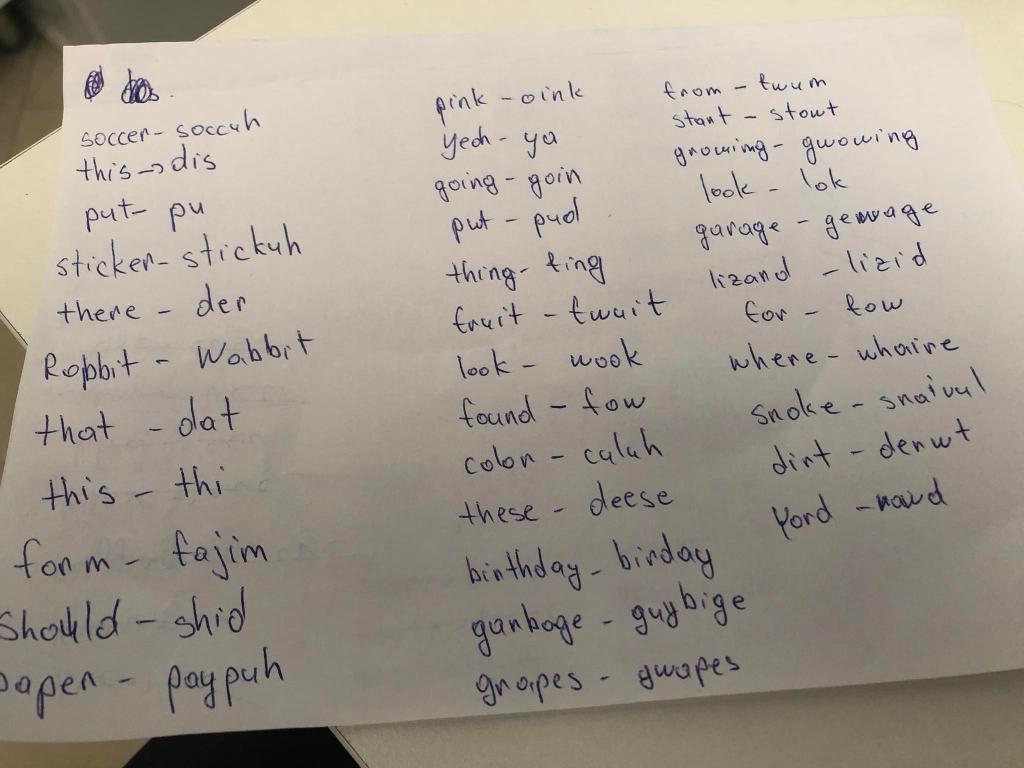 soccer - soccuh
this -> dis
put - pu
sticker - stickuh
there - der
Robbit - Wabbit
that - dat
this - thi
form - fajim
Should - shid
paper - paypuh
pink - oink
yeah - ya
going - goin
put - pud
thing - ting
fruit - fwuit
look - wook
found - fow
color - culuh
these - deese
birthday - birday
garbage - guybige
grapes - gwapes
from - fwum
start - stowt
growing - gwowing
look - lok
garage - gewage
lizard - lizid
for - fow
where - whaire
snake - snaivul
dirt - derwt